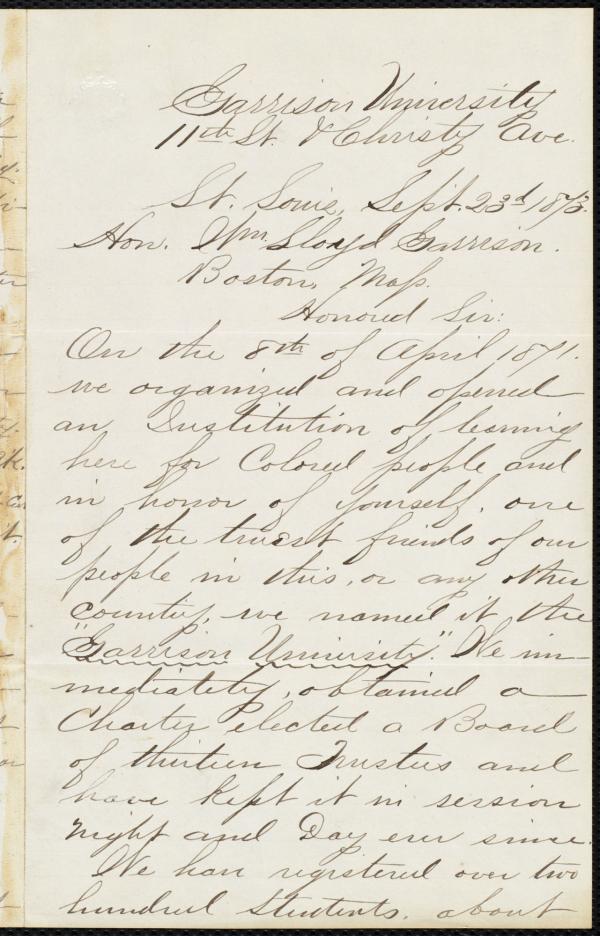 Garrison University
11th St. & Christy Ave.
St. Louis, Sept. 23d 1873.
Hon. Wm Lloyd Garrison.
Boston, Mass.
Honored Sir:
On the 8th of April 1871.
we organized and opened
an Institution of learning
here for Colored people and
in honor of yourself, one
of the truest friends of our
people in this, or any other
country, we named it the
"Garrison University." We im-
mediately, obtained a
Charter elected a Board
of thirteen Trustees and
have kept it in session
night and Day ever since.
We have registered over two
hundred students. about